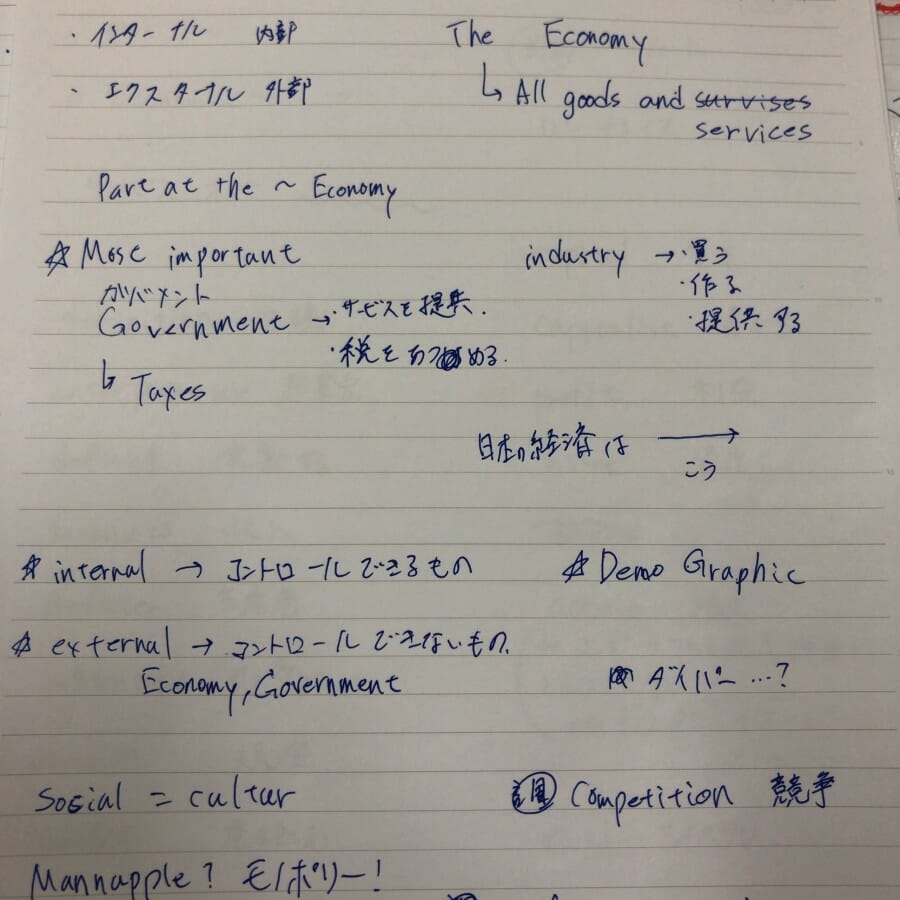 ・インターナル 内部
・エクスターナル 外部
The Economy
↳ All goods and survises
services
Part at the ～ Economy
☆ Most important
ガバメント
Government → ・サービスを提供.
・税をあつめる.
↳ Taxes
industry → ・買う
・作る
・提供する
日本の経済は →
こう
☆ internal → コントロールできるもの
☆ Demo Graphic
☆ external → コントロールできないもの.
Economy, Government
ダイパー…?
Sosial = cultur
Competition 競争
Mannapple? モノポリー!